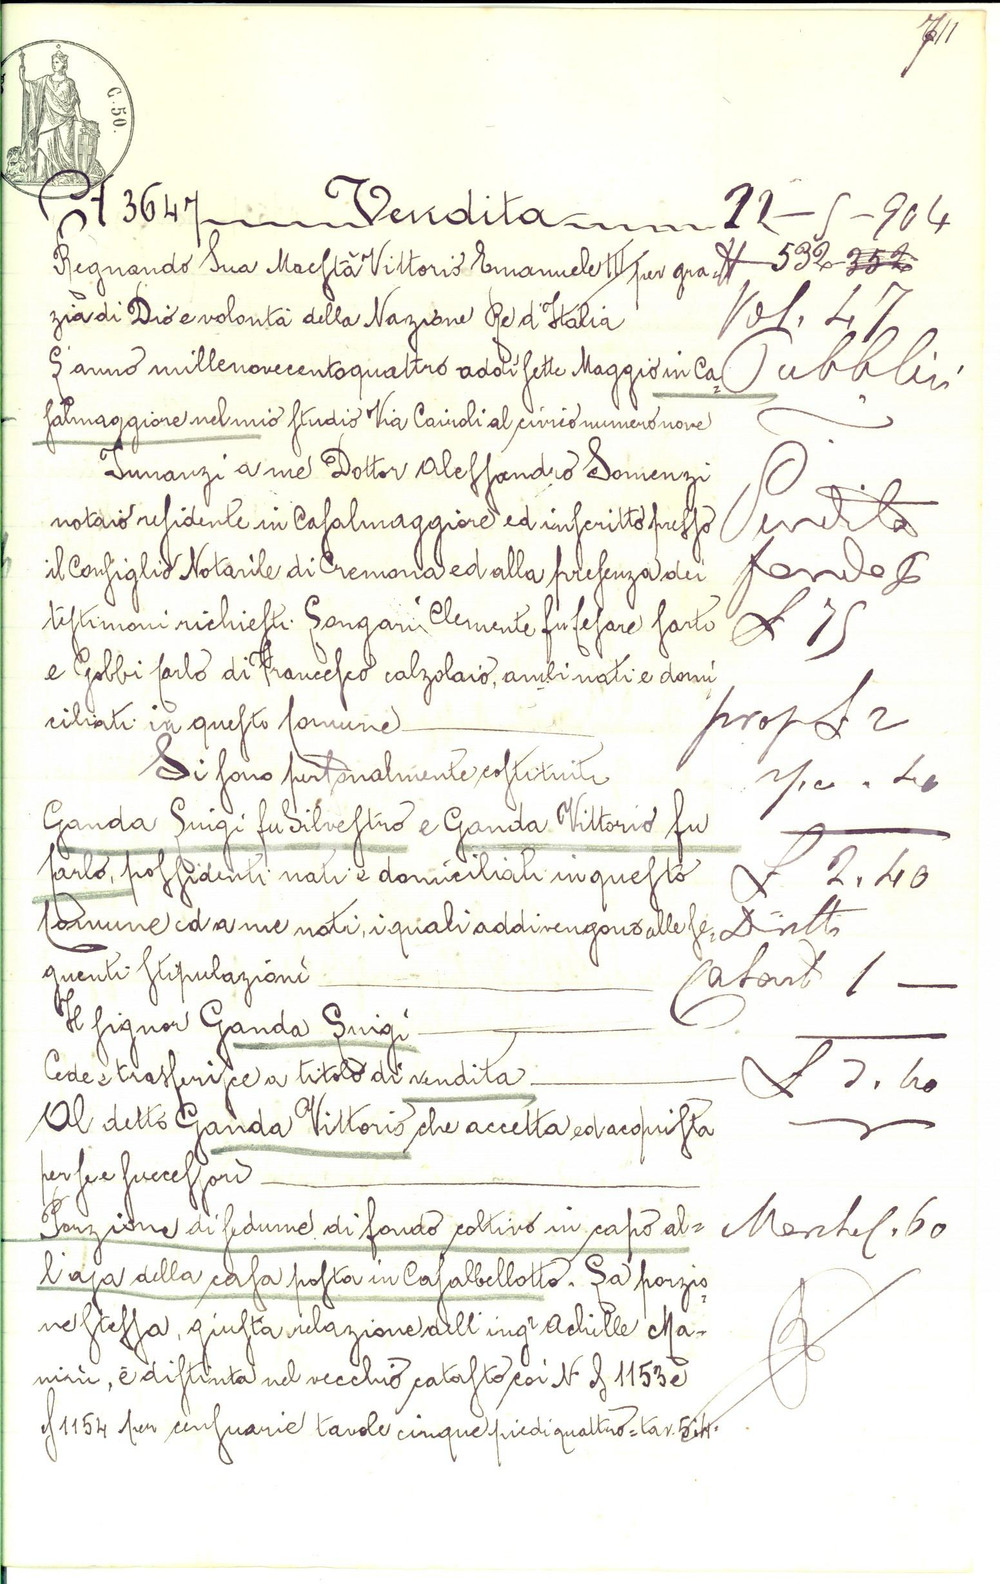 C. 50.
N 3647 Vendita 22 - 5 - 904
Regnando Sua Maestà Vittorio Emanuele III per gra= N 532 352
zia di Dio e volontà della Nazione Re d'Italia Vol. 47
L'anno millenovecentoquattro addì sette Maggio in Ca= Pubblici
salmaggiore nel mio studio Via Cairoli al civico numero nove
Innanzi a me Dottor Alessandro Somenzi
notaio residente in Casalmaggiore ed inscritto presso Vendita
il Consiglio Notarile di Cremona ed alla presenza dei fondo
testimoni richiesti Longari Clemente fu Cesare sarto £ 75
e Gobbi Carlo di Francesco calzolaio, ambi nati e domi
ciliati in questo Comune prop £ 2
Si sono personalmente costituiti . 40
Ganda Luigi fu Silvestro e Ganda Vittorio fu
Carlo, possidenti nati e domiciliati in questo £ 2.40
Comune ed a me noti, i quali addivengono alle se= Diritti
guenti stipulazioni Catast 1 —
Il signor Ganda Luigi
Cede e trasferisce a titolo di vendita £ 3.40
Al detto Ganda Vittorio che accetta ed acquista
per se e successori
Porzione di sedume di fondo coltivo in capo al= .60
l'aja della casa posta in Casalbellotto. La porzio=
ne stessa, giusta relazione dell'ingr Achille Ma=
nini, è distinta nel vecchio catasto coi N di 1153 e
di 1154 per censuarie tavole cinque piedi quattro = tav. 5.4.